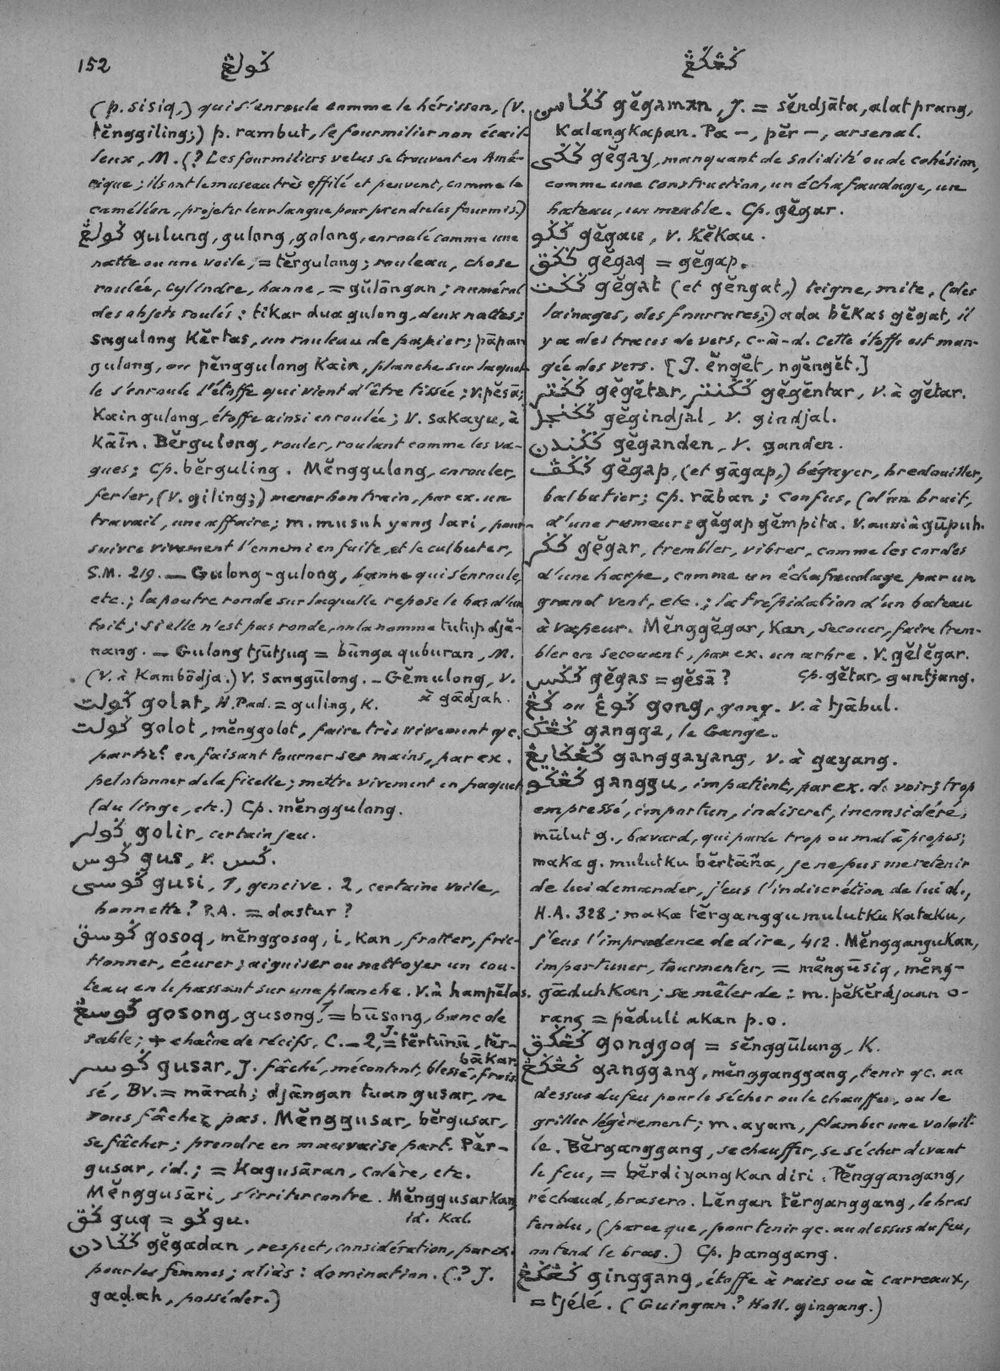 152 ݢولڠ ݢڠݢڠ
(p. sisiq,) qui s'enroule comme le hérisson, (v.
tĕnggiling;) p. rambut, le fourmilier non écail-
leux, M. (? Les fourmiliers velus se trouvent en Amé-
rique; ils ont le museau très effilé et peuvent, comme le
caméléon, projeter leur langue pour prendre les fourmis.)
ݢولڠ gulung, gulong, golong, enroulé comme une
natte ou une voile, = tĕrgulong; rouleau, chose
roulée, cylindre, banne, = gŭlōngan; numéral
des objets roulés: tikar dua gulong, deux nattes;
sagulong kĕrtas, un rouleau de papier; pāpan
gulong, ou pĕnggulong kain, planche sur laquel-
le s'enroule l'étoffe qui vient d'être tissée; v. pĕsā;
kain gulong, étoffe ainsi enroulée; v. sakayu, à
kāīn. Bĕrgulong, rouler, roulant comme les va-
gues; Cp. bĕrguling. Mĕnggulong, enrouler,
ferler, (v. giling;) mener bon train, par ex. un
travail, une affaire; m. musuh yang lari, pour-
suivre vivement l'ennemi en fuite, et le culbuter,
S.M. 219. — Gulong-gulong, banne qui s'enroule,
etc.; la poutre ronde sur laquelle repose le bas d'un
toit; si elle n'est pas ronde, on la nomme tutup djĕ-
nang. — Gulong tjūtjuq = būnga quburan, M.
(v. à Kambōdja.) v. sanggūlong. — Gĕmulong, v.
à gādjah.
ݢولت golat, H. Pad. = guling, K.
ݢولت golot, mĕnggolot, faire très vivement qc.
partict en faisant tourner ses mains, par ex.
pelotonner de la ficelle; mettre vivement en paquet
(du linge, etc.) Cp. mĕnggulong.
ݢولير golir, certain jeu.
ݢوس gus, v. ݢس.
ݢوسى gusi, 1, gencive. 2, certaine voile,
bonnette? P.A. = dastur?
ݢوسق gosoq, mĕnggosoq, i, kan, frotter, fric-
tionner, écurer; aiguiser ou nettoyer un cou-
teau en le passant sur une planche. v. à hampĕlas.
ݢوسڠ gosong, gusong, 1 = būsong, banc de
sable; + chaîne de récifs, C. — 2, J. = tĕrtūnū, tĕr-
bākar.
ݢوسر gusar, J. fâché, mécontent, blessé, frois-
sé, BV. = mārah; djāngan tuan gusar, ne
vous fâchez pas. Mĕnggusar, bĕrgusar,
se fâcher; prendre en mauvaise part. Pĕr-
gusar, id.; = kagusāran, colère, etc.
Mĕnggusāri, s'irriter contre. Mĕnggusarkan,
id. Kal.
ݢق guq = ݢو gu.
ݢݢادن gĕgadan, respect, considération, par ex.
pour les femmes; aliàs: domination. (? J.
gaḍah, posséder.)
ݢݢامن gĕgaman, J. = sĕndjāta, alat prang,
kalangkapan. Pa —, pĕr —, arsenal.
ݢݢى gĕgay, manquant de solidité ou de cohésion,
comme une construction, un échafaudage, un
bateau, un meuble. Cp. gĕgar.
ݢݢو gĕgau, v. kĕkau.
ݢݢق gĕgaq = gĕgap.
ݢݢت gĕgat (et gĕngat,) teigne, mite, (des
lainages, des fourrures;) ada bĕkas gĕgat, il
y a des traces de vers, c-à-d. cette étoffe est man-
gée des vers. [J. ĕngĕt, ngĕngĕt.]
ݢݢتر gĕgĕtar, ݢݢنتر gĕgĕntar, v. à gĕtar.
ݢݢنجل gĕgindjal, v. gindjal.
ݢݢندن gĕganden, v. ganden.
ݢݢڤ gĕgap, (et gāgap,) bégayer, bredouiller,
balbutier; Cp. rāban; confus, (d'un bruit,
d'une rumeur: gĕgap gĕmpita. v. aussi à gūpuh.
ݢݢر gĕgar, trembler, vibrer, comme les cordes
d'une harpe, comme un échafaudage par un
grand vent, etc.; la trépidation d'un bateau
à vapeur. Mĕnggĕgar, kan, secouer, faire trem-
bler en secouant, par ex. un arbre. v. gĕlĕgar.
ݢݢس gĕgas = gĕsā? Cp. gĕtar, guntjang.
ݢڠ ou ݢوڠ gong, gong. v. à tjābul.
ݢڠݢ gangga, le Gange.
ݢڠݢايڠ ganggayang, v. à gayang.
ݢڠݢو ganggu, impatient, par ex. de voir; trop
empressé, importun, indiscret, inconsidéré;
mūlut g., bavard, qui parle trop ou mal à propos;
maka g. mulutku bĕrtāña, je ne pus me retenir
de lui demander, j'eus l'indiscrétion de lui d.,
H.A. 328; maka tĕrganggu mulutku kataku,
j'eus l'imprudence de dire, 412. Mĕnggangukan,
importuner, tourmenter, = mĕngūsiq, mĕng-
gāduhkan; se mêler de: m. pĕkĕrdjaan o-
rang = pĕduli akan p.o.
ݢڠݢق gonggoq = sĕnggūlung, K.
ݢڠݢڠ ganggang, mĕngganggang, tenir qc. au
dessus du feu pour le sécher ou le chauffer, ou le
griller légèrement; m. ayam, flamber une volail-
le. Bĕrganggang, se chauffer, se sécher devant
le feu, = bĕrdiyangkan diri. Pĕnggangang,
réchaud, brasero. Lĕngan tĕrganggang, le bras
tendu, (parce que, pour tenir qc. au dessus du feu,
on tend le bras.) Cp. panggang.
ݢڠݢڠ ginggang, étoffe à raies ou à carreaux,
= tjélé. (Guingan? Holl. gingang.)